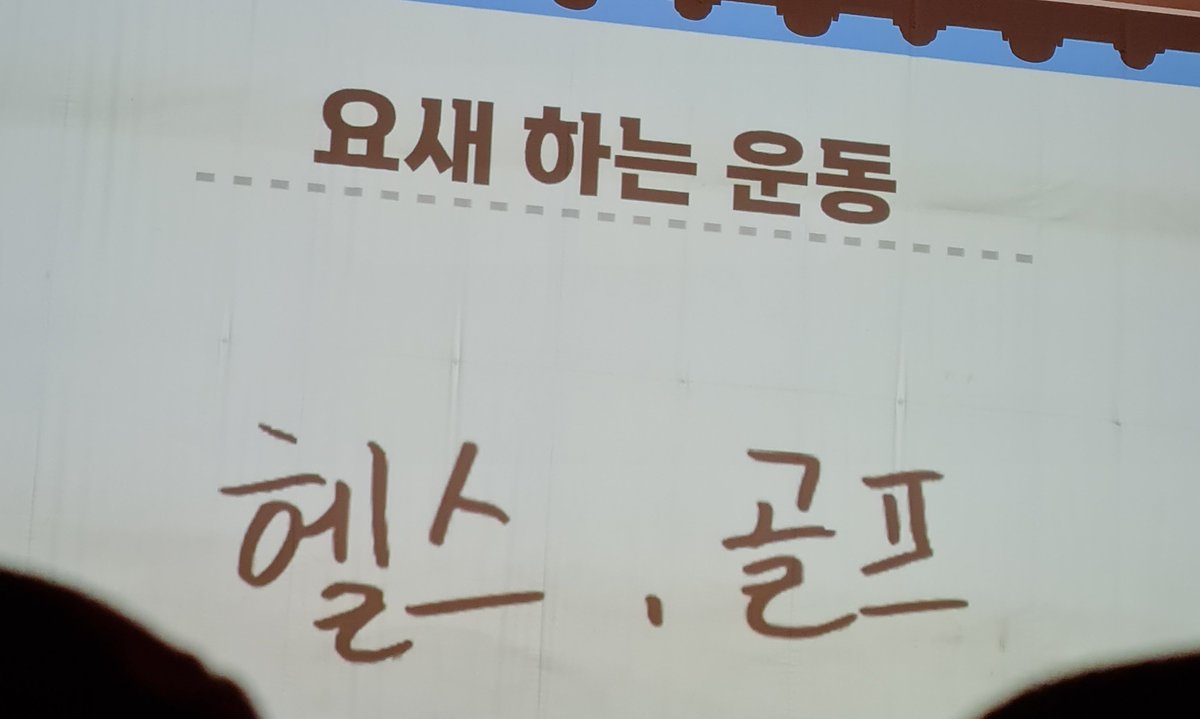 요새 하는 운동
헬스 , 골프